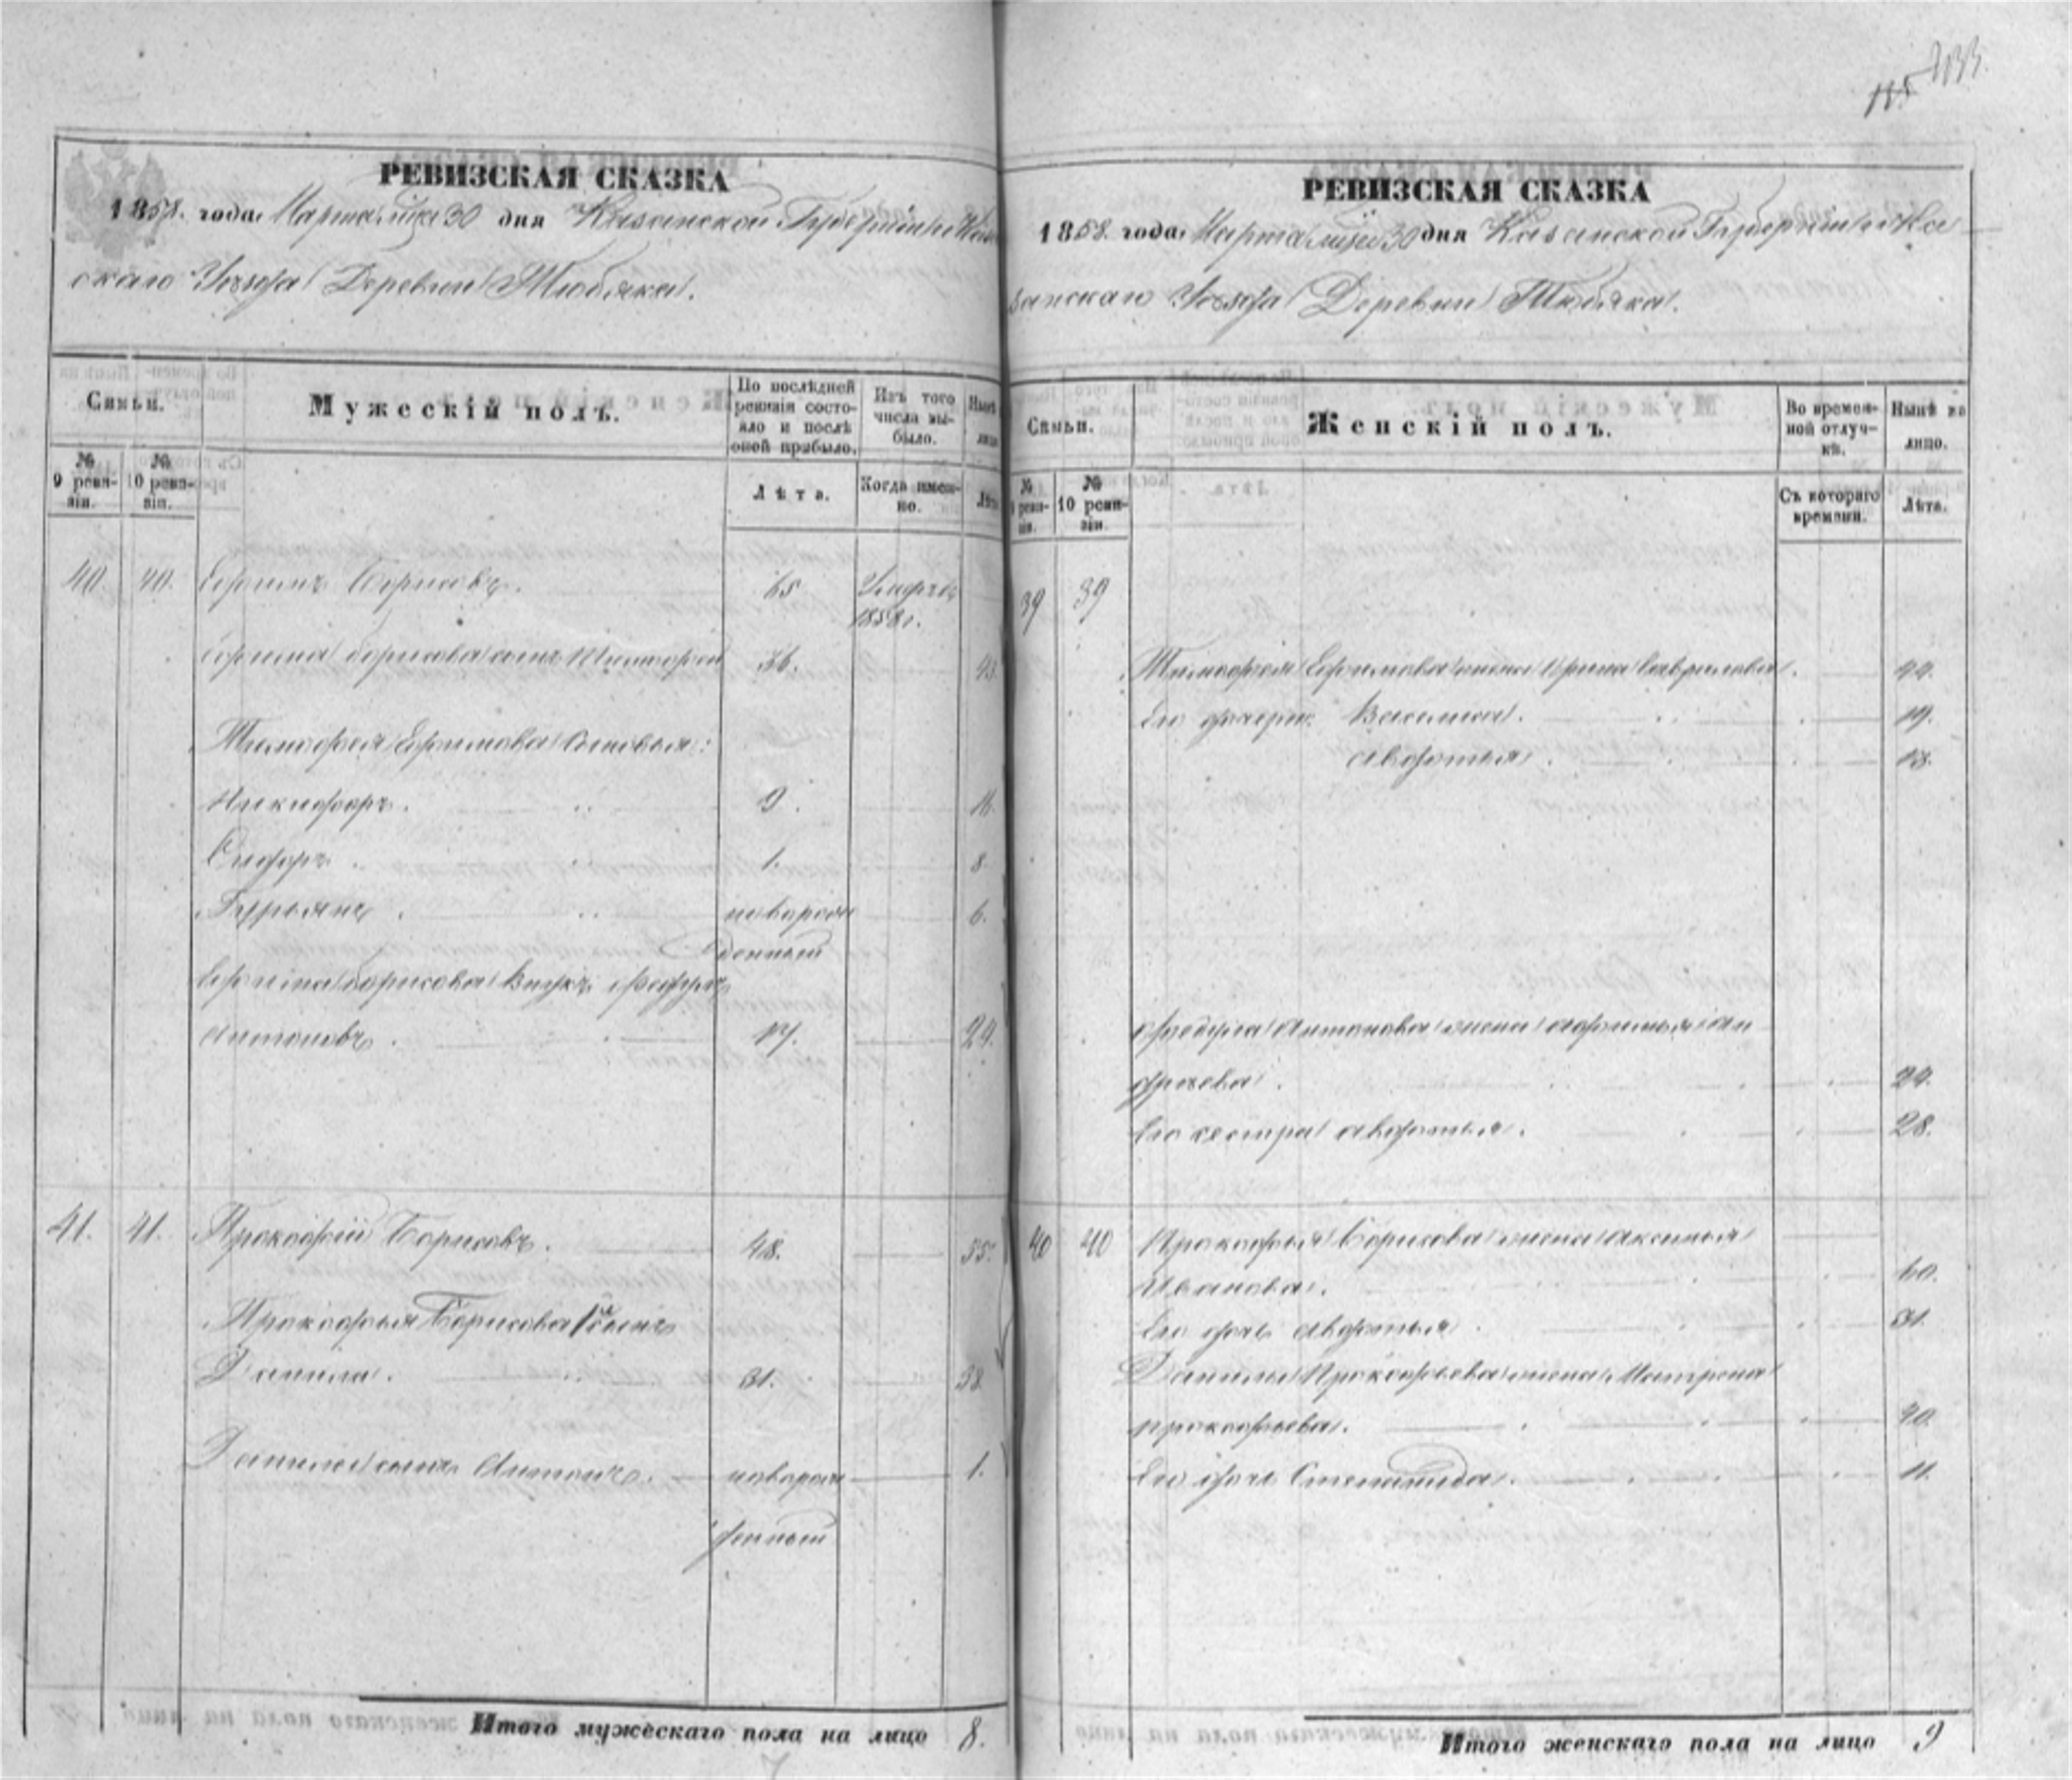 133.
115
РЕВИЗСКАЯ СКАЗКА
1858. года. Марта м̃ца 30 дня Казанской Губерніи и Каза
скаго Уѣзда Деревни Тюбяка.
Семьи.
Мужескій полъ.
По послѣдней ревизіи состояло и послѣ оной прибыло.
Изъ того числа выбыло.
№ 9 ревизіи.
№ 10 ревизіи.
Лѣта.
Когда именно.
40. 40. Ефимъ Борисовъ. 65 Умеръ въ
1858 г.
Ефима Борисова сынъ Тимофей 36. 43.
Тимофея Ефимова сыновья:
Никифоръ. 9. 16.
Сидоръ. 1. 8.
Гурьянъ. новорож 6.
денный
Ефима Борисова внукъ Федулъ
Антоновъ. 17. 24.
41. 41. Прокофій Борисовъ. 48. 55.
Прокофья Борисова сынъ
Данила. 31. 38.
Данилы сынъ Антонъ. новорож 1.
денный
Итого мужескаго пола на лицо 8.
РЕВИЗСКАЯ СКАЗКА
1858. года. Марта м̃ца 30 дня Казанской Губерніи и Ка
занскаго Уѣзда Деревни Тюбяка.
Семьи.
Женскій полъ.
Во временной отлучкѣ.
Нынѣ на лицо.
№ 9 ревизіи.
№ 10 ревизіи.
Съ котораго времени.
Лѣта.
39 39
Тимофея Ефимова жена Ирина Гаврилова. 44.
Его дочери: Василиса. 19.
Авдотья. 13.
Федула Антонова жена Афимья Ан
дреева. 24.
Его сестра Авдотья. 28.
40 40 Прокофья Борисова жена Аксинья
Иванова. 60.
Его дочь Авдотья. 31.
Данилы Прокофьева жена Матрена
Прокофьева. 40.
Его дочь Степанида. 11.
Итого женскаго пола на лицо 9